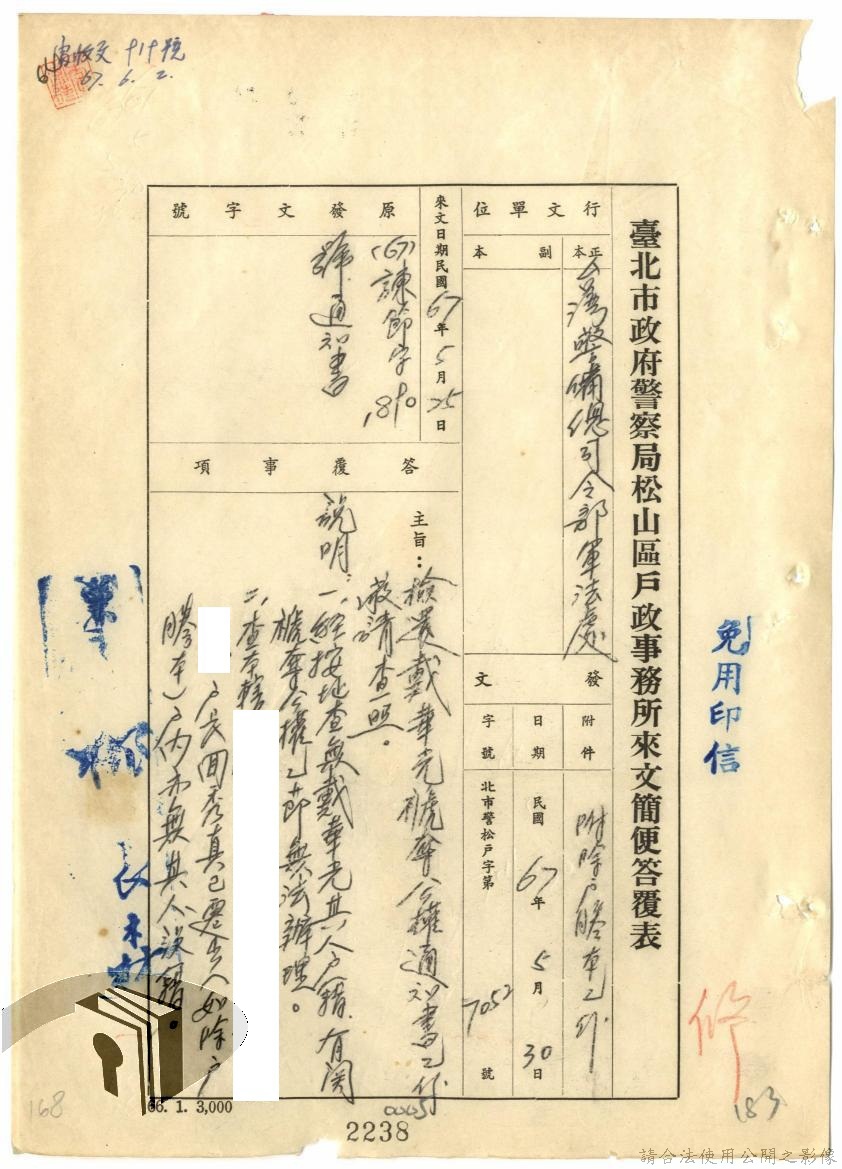 收文 十八號
67. 6. 2.
臺北市政府警察局松山區戶政事務所來文簡便答覆表
免用印信
行文單位
正本
台灣警備總司令部軍法處
副本
發文
附件
附除戶謄本乙份
日期
民國67年5月30日
字號
北市警松戶字第7052號
來文日期民國67年5月25日
原發文字號
(67)諫節字1890
號通知書
答覆事項
主旨：檢還戴華光褫奪公權通知書乙份
敬請查照。
說明：一、經按址查無戴華光其人戶籍，有關
褫奪公權乙節無法辦理。
二、查本轄
戶長周秀真已遷出（如除戶
謄本）戶內亦無其人設籍。
66. 1. 3,000
2238
168
183
請合法使用公開之影像